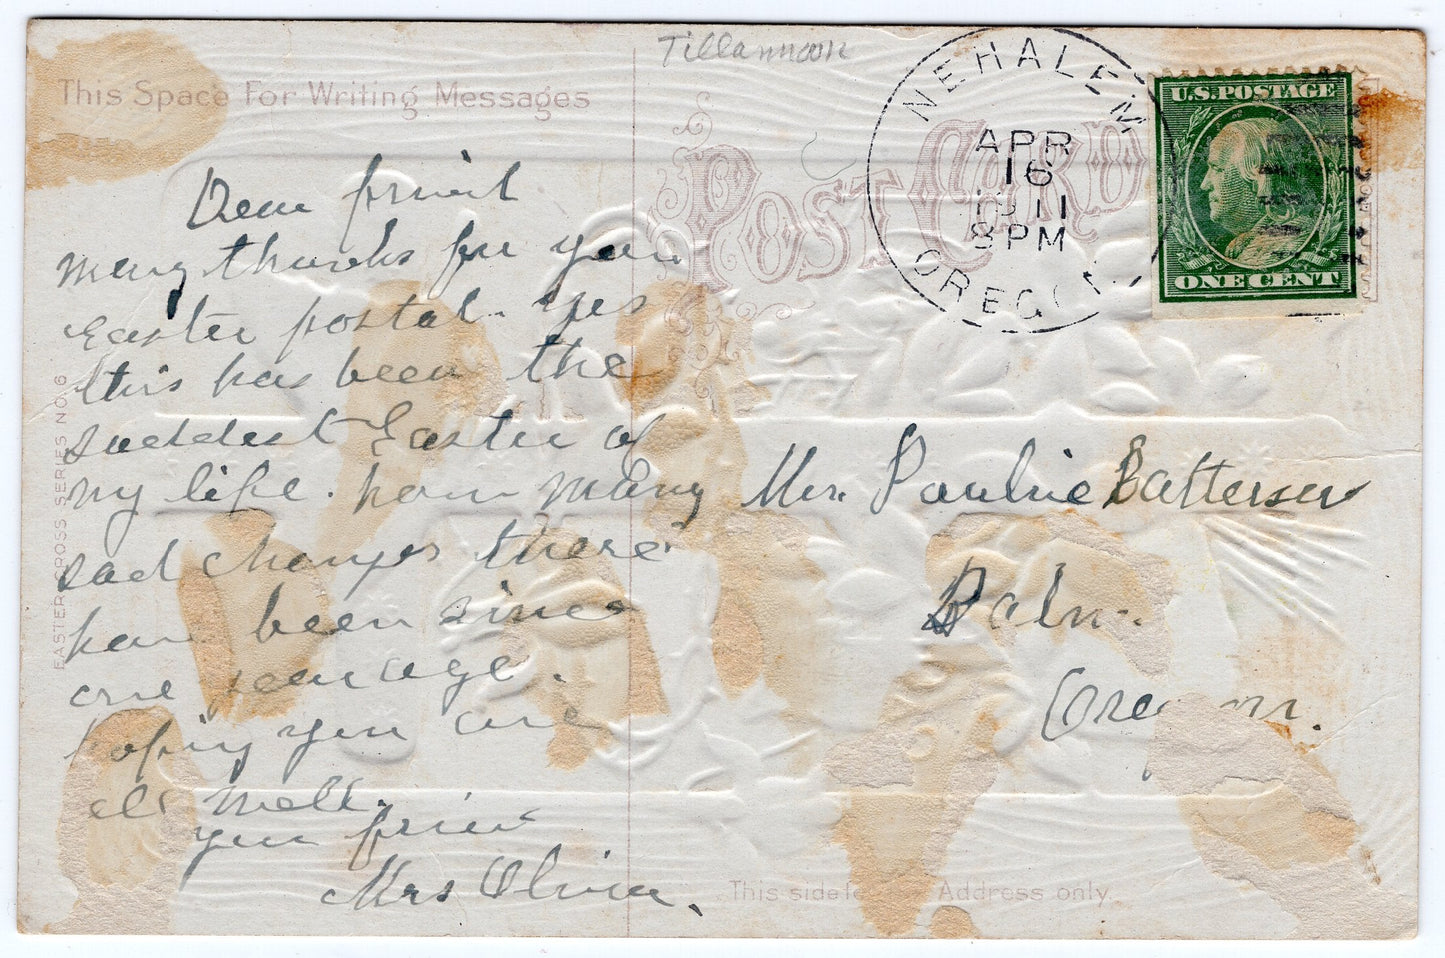 Tillamook
This Space For Writing Messages
POST CARD
NEHALEM
APR
16
1911
8 PM
OREGON
U.S. POSTAGE
ONE CENT
Dear friend
many thanks for your
Easter postal. yes
this has been the
saddest Easter of
my life. how many
sad changes there
have been since
one year ago.
hoping you are
all well.
your friend
Mrs Oliver.
EASTER CROSS SERIES NO. 6
Mrs. Pauline Batterson
Balm.
Oregon.
This side for Address only.